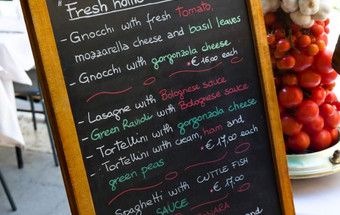 Fresh
- Gnocchi with fresh tomato,
mozzarella cheese and basil leaves
- Gnocchi with gorgonzola cheese
€ 16.00 each
- Lasagne with Bolognese sauce
- Green Ravioli with Bolognese sauce
- Tortellini with gorgonzola cheese
- Tortellini with cream, ham and
green peas
€ 17.00 each
Spaghetti with CUTTLE FISH
SAUCE
€ 17.00